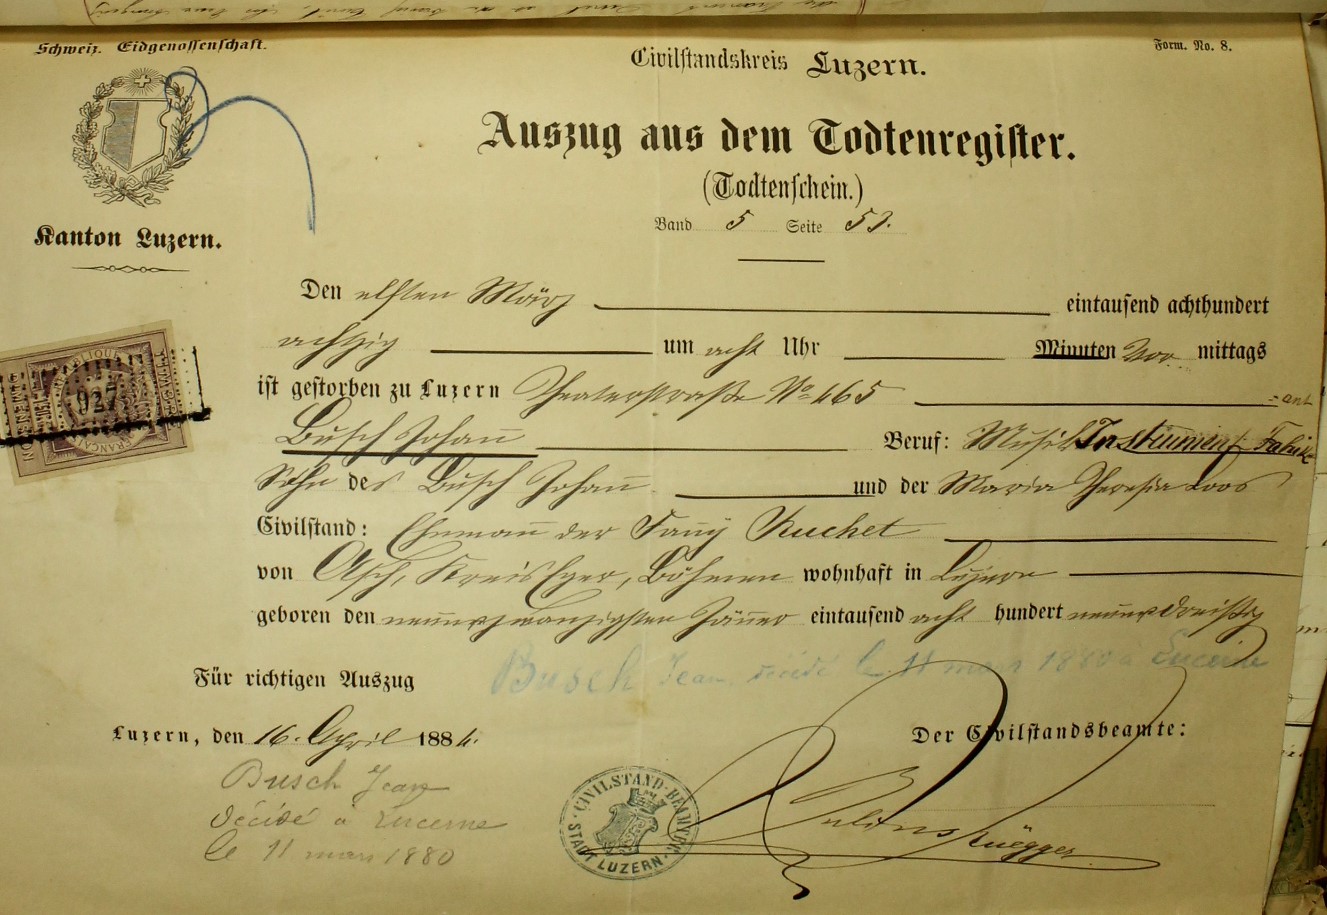 Schweiz. Eidgenossenschaft.
Form. No. 8.
Civilstandskreis Luzern.
Auszug aus dem Todtenregister.
(Todtenschein.)
Kanton Luzern.
Band 5 Seite 53.
Den elften März eintausend achthundert
achtzig um acht Uhr Minuten Vor mittags
ist gestorben zu Luzern Theaterstraße No 465
Busch Johañ Beruf: Musik Instrument Fabrik
Sohn des Busch Johañ und der Maria Theresia Loos
Civilstand: Ehemañ der Fañy Ruchet
von Asch, Kreis Eger, Böhmen wohnhaft in Luzern
geboren den neunundzwanzigsten Jäner eintausend acht hundert neununddreißig
Busch Jean, décédé le 11 mars 1880 à Lucerne
Für richtigen Auszug
Luzern, den 16. April 1884.
Der Civilstandsbeamte:
Busch Jean
décédé à Lucerne
le 11 mars 1880
CIVILSTAND-BEAMTER
STADT LUZERN.
Rüegger
927